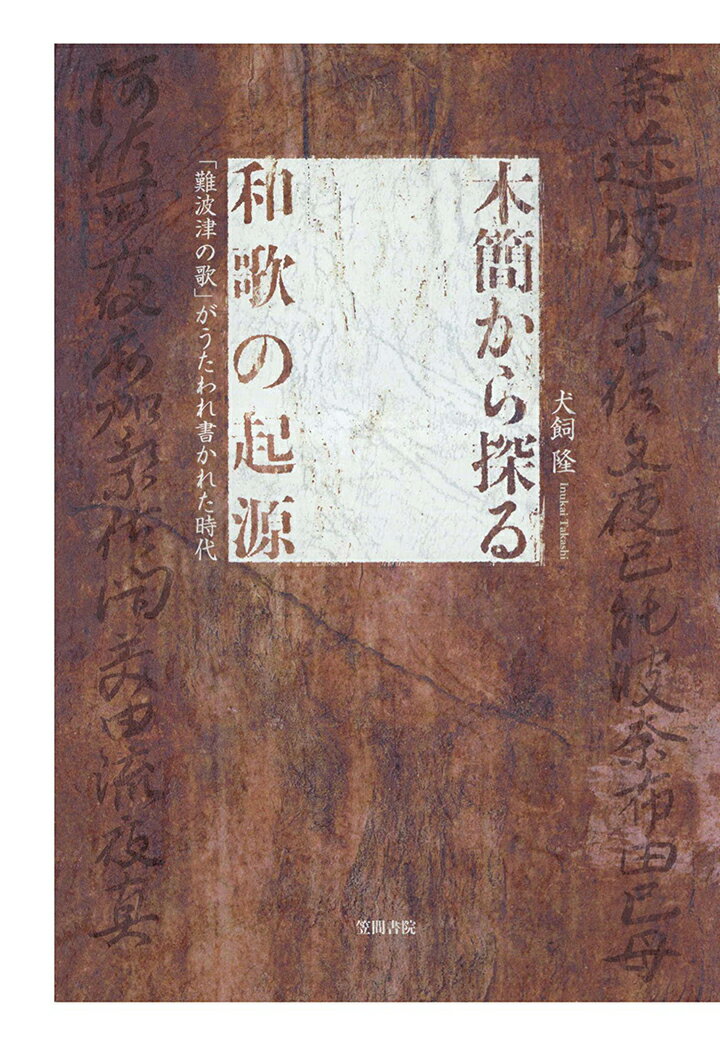 奈迩波ツ尓佐久夜己能波奈布由己母
犬飼 隆
Inukai Takashi
木簡から探る
和歌の起源
「難波津の歌」がうたわれ書かれた時代
阿佐可夜麻加氣佐閇美由流夜真
笠間書院